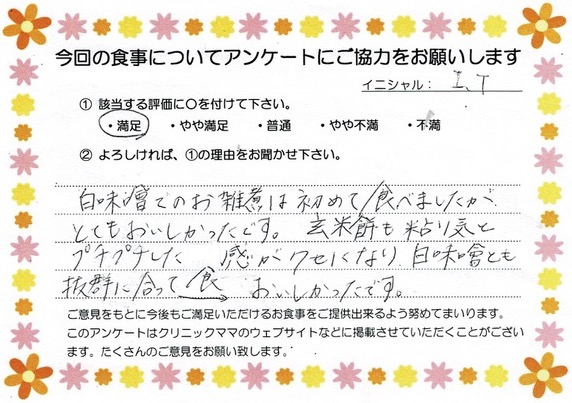 今回の食事についてアンケートにご協力をお願いします
イニシャル： I.T
① 該当する評価に○を付けて下さい。
・満足 ・やや満足 ・普通 ・やや不満 ・不満
② よろしければ、①の理由をお聞かせ下さい。
白味噌でのお雑煮は初めて食べましたが、
とてもおいしかったです。 玄米餅も粘り気と
プチプチした 感がクセになり、白味噌とも
抜群に合って 食 おいしかったです。
ご意見をもとに今後もご満足いただけるお食事をご提供出来るよう努めてまいります。
このアンケートはクリニックママのウェブサイトなどに掲載させていただくことがござい
ます。たくさんのご意見をお願い致します。